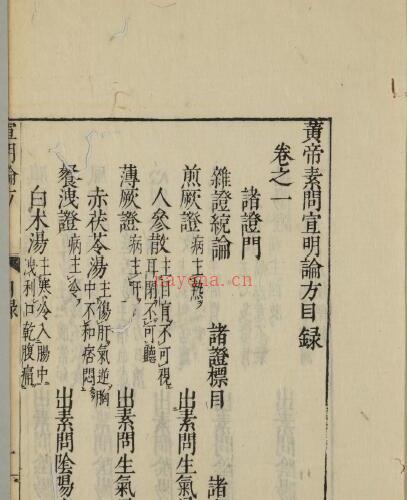 黃帝素問宣明論方目録
卷之一
諸證門
雜證統論 諸證標目 諸
煎厥證 病主熱 出素問生氣
人參散 主目盲不可視 耳閉不可聽
薄厥證 病主肝 出素問生氣
赤茯苓湯 主傷肝氣逆胸 中不和痞悶
飱泄證 病主冷 出素問陰陽
白术湯 主寒冷入腸中 洩利口乾腹痛
宣明論方 目録
hayana.cn